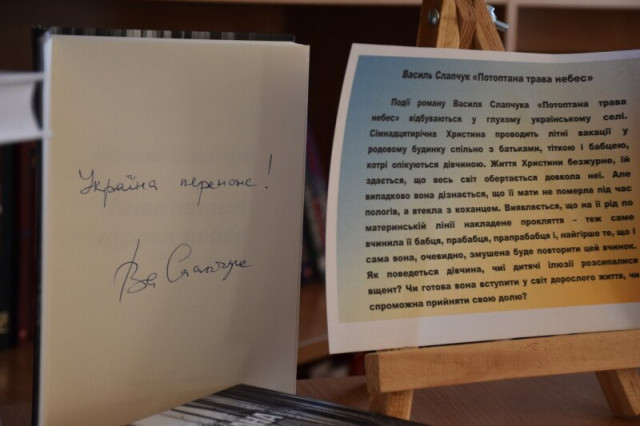 Україна переможе!
Василь Слапчук «Потоптана трава небес»
Події роману Василя Слапчука «Потоптана трава
небес» відбуваються у глухому українському селі.
Сімнадцятирічна Христина проводить літні вакації у
родовому будинку спільно з батьками, тіткою і бабцею,
котрі опікуються дівчиною. Життя Христини безжурне, їй
здається, що весь світ обертається довкола неї. Але
випадково вона дізнається, що її мати не померла під час
пологів, а втекла з коханцем. Виявляється, що на її рід по
материнській лінії накладене прокляття – теж саме
вчинила її бабця, прабабця, прапрабабця і, найгірше те, що і
сама вона, очевидно, змушена буде повторити цей вчинок.
Як поведеться дівчина, чиї дитячі ілюзії розсипалися
вщент? Чи готова вона вступити у світ дорослого життя, чи
спроможна прийняти свою долю?